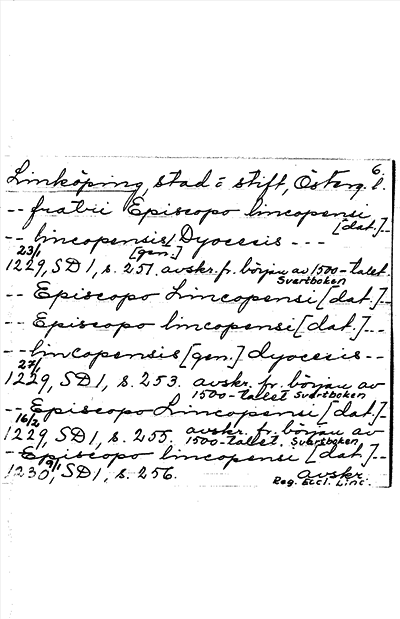 6.
Linköping, stad o stift, Österg. l.
-- fratri Episcopo lincopensi [dat.] --
-- lincopensis [gen.] Dyocesis ---
23/1 1229, SD 1, s. 251. avskr. fr. början av 1500-talet Svartboken
-- Episcopo Lincopensi [dat.] --
-- Episcopo lincopensi [dat.] --
-- lincopensis [gen.] dyocesis --
27/1 1229, SD 1, s. 253. avskr. fr. början av 1500-tallet Svartboken
-- Episcopo Lincopensi [dat.] --
16/2 1229, SD 1, s. 255. avskr. fr. början av 1500-tallet. Svartboken
-- Episcopo lincopensi [dat.] --
1230 9/1, SD 1, s. 256. avskr. Reg. Eccl. Linc.